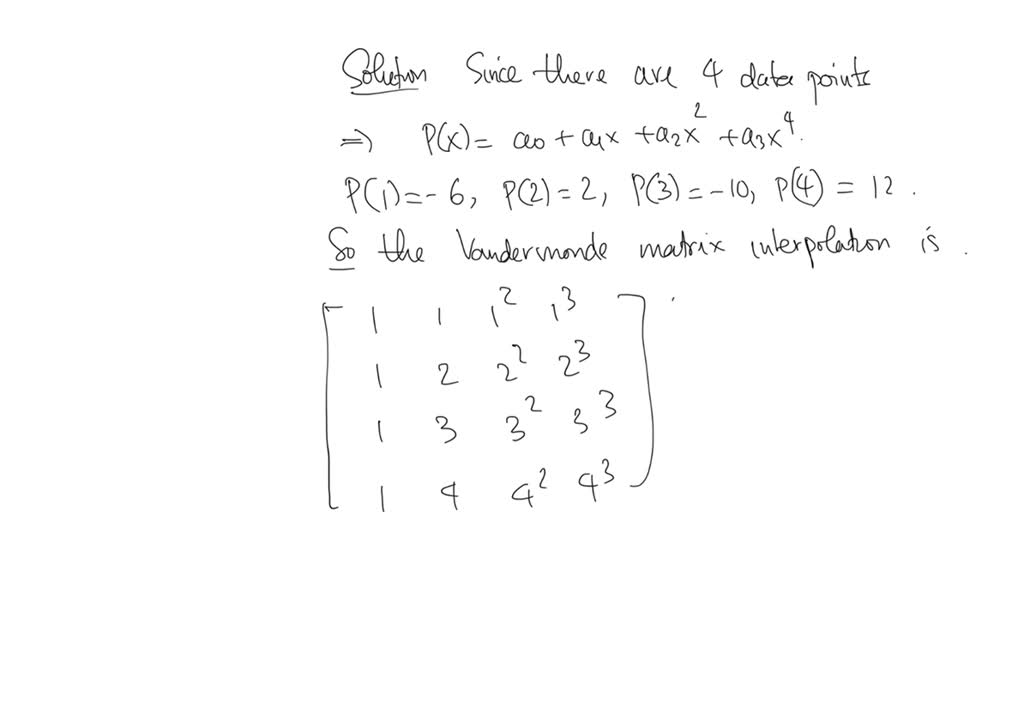 Solution Since there are 4 data points
⇒ P(x) = a0 + a1x + a2x² + a3x⁴.
P(1) = -6, P(2) = 2, P(3) = -10, P(4) = 12.
So the Vandermonde matrix interpolation is.
1 1 1² 1³
1 2 2² 2³
1 3 3² 3³
1 4 4² 4³